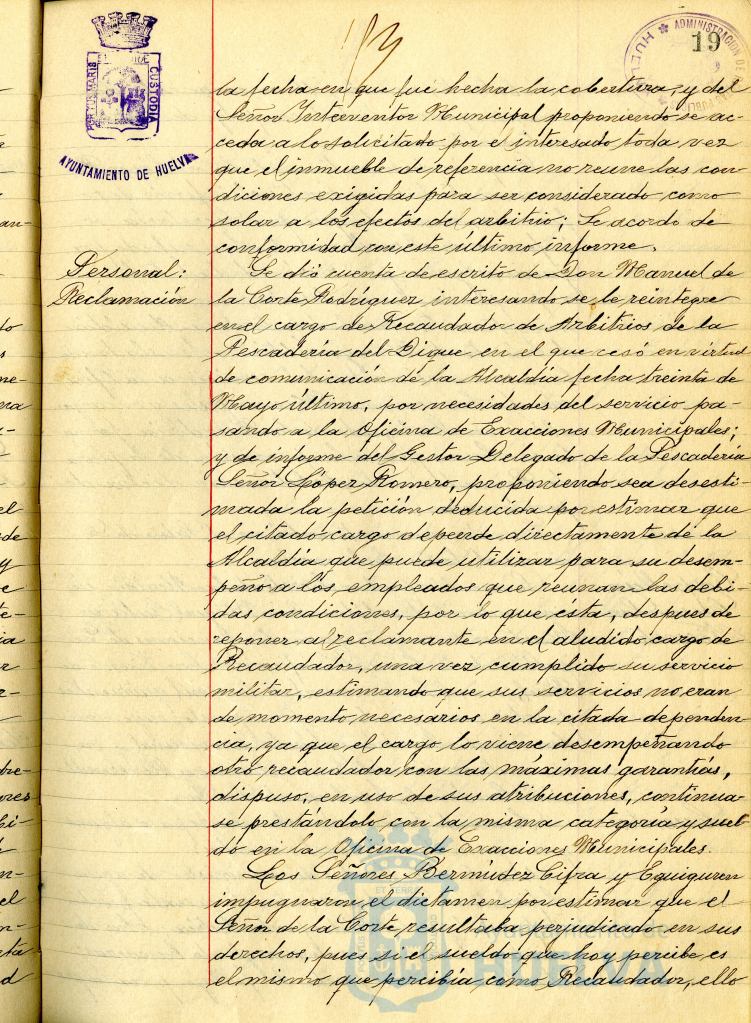 19
ADMINISTRACION DE
CUSTODIA
AYUNTAMIENTO DE HUELVA
la fecha en que fué hecha la cobertura, y del
Señor Interventor Municipal proponiendo se ac-
ceda a lo solicitado por el interesado toda vez
que el inmueble de referencia no reune las con
diciones exigidas para ser considerado como
solar a los efectos del arbitrio; Se acordo de
conformidad con este último informe.
Personal:
Reclamación
Se dió cuenta de escrito de Don Manuel de
la Corte Rodríguez interesando se le reintegre
en el cargo de Recaudador de Arbitrios de la
Pescadería del Dique en el que cesó en virtud
de comunicación de la Alcaldía fecha treinta de
Mayo último, por necesidades del servicio pa-
sando a la Oficina de Exacciones Municipales;
y de informe del Gestor Delegado de la Pescadería
Señor López Romero, proponiendo sea desesti-
mada la petición deducida por estimar que
el citado cargo depende directamente de la
Alcaldía que puede utilizar para su desem-
peño a los empleados que reunan las debi-
das condiciones, por lo que esta, despues de
reponer al reclamante en el aludido cargo de
Recaudador, una vez cumplido su servicio
militar, estimando que sus servicios no eran
de momento necesarios en la citada dependen
cia, ya que el cargo lo viene desempeñando
otro recaudador con las máximas garantías,
dispuso, en uso de sus atribuciones, continua-
se prestándolo con la misma categoría y suel-
do en la Oficina de Exacciones Municipales.
Los Señores Bermúdez Cifra y Eguiguren
impugnaron el dictamen por estimar que el
Señor de la Corte resultaba perjudicado en sus
derechos, pues si el sueldo que hoy percibe es
el mismo que percibía como Recaudador, ello
HUELVA